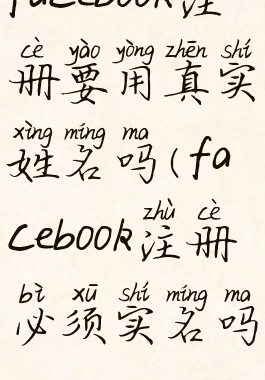 facebook注
cè yào yòng zhēn shí
册要用真实
xìng míng ma
姓名吗(fa
zhù cè
cebook注册
bì xū shí míng ma
必须实名吗